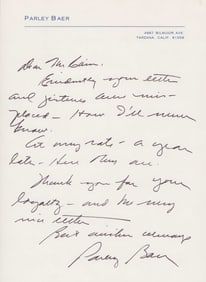 PARLEY BAER
4967 BILMOOR AVE.
TARZANA, CALIF. 91356
Dear Mr. Cain.
Evidently your letter
and pictures were mis-
placed – How I'll never
know.
At any rate – a year
late – Here they are.
Thank you for your
loyalty – and the very
nice letter
Best wishes always
Parley Baer